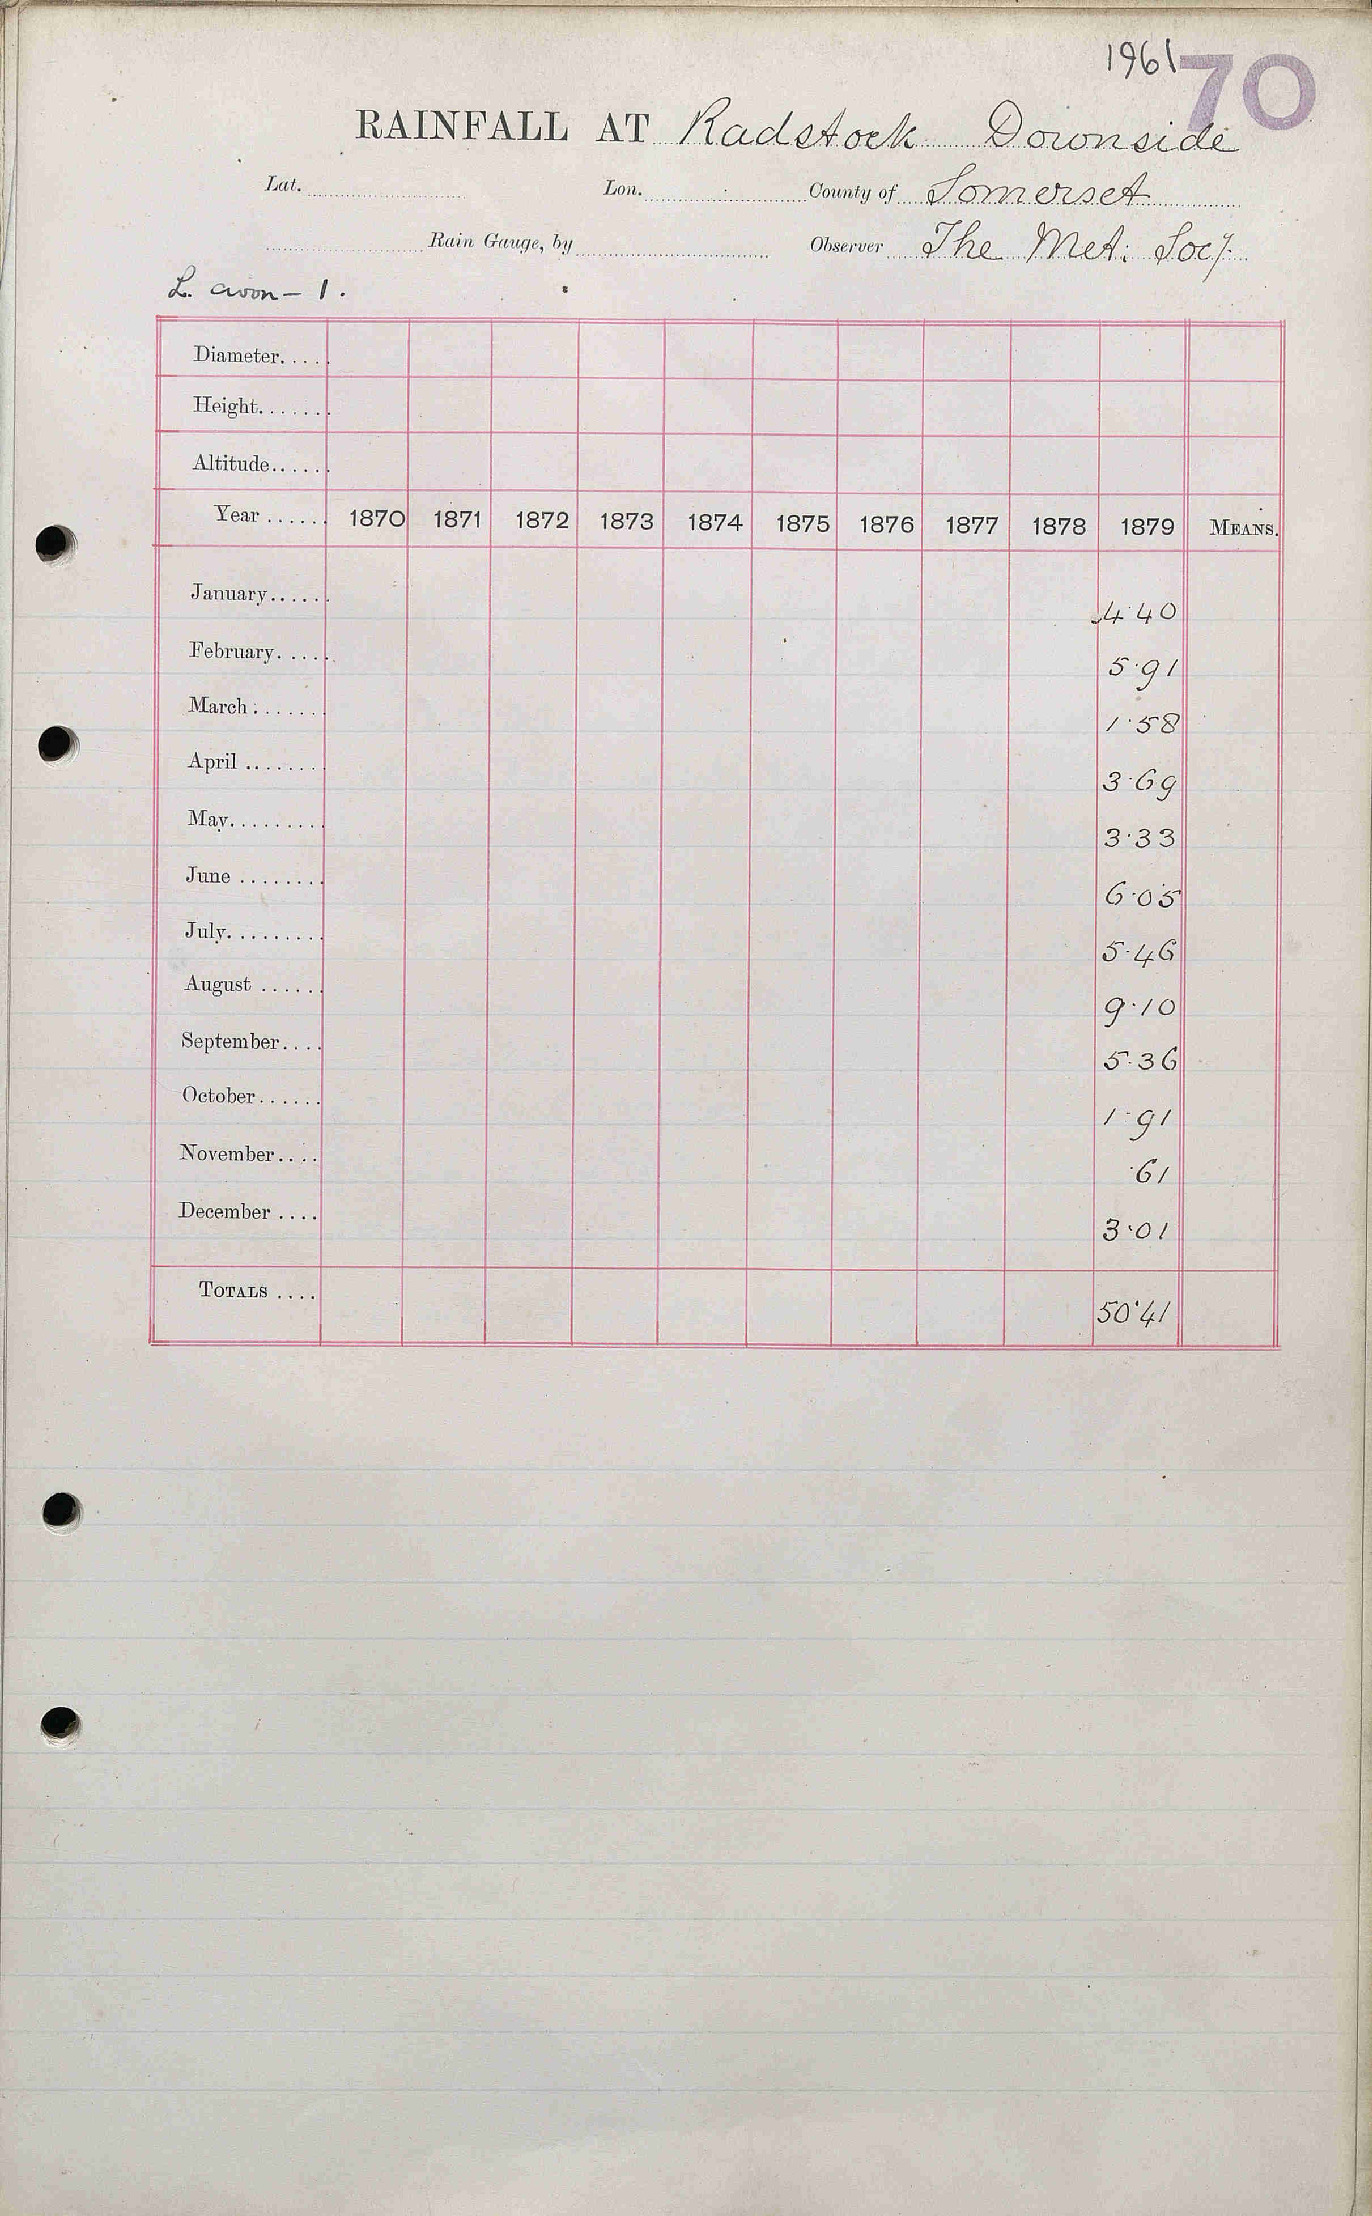 1961 70
RAINFALL AT Radstock Downside
Lat. Lon. County of Somerset
Rain Gauge, by Observer The Met: Socy.
L. Avon - 1.
Diameter.....
Height.......
Altitude......
Year ...... 1870 1871 1872 1873 1874 1875 1876 1877 1878 1879 MEANS.
January...... 4·40
February..... 5·91
March ....... 1·58
April ........ 3·69
May......... 3·33
June ........ 6·05
July......... 5·46
August ...... 9·10
September.... 5·36
October...... 1·91
November.... ·61
December .... 3·01
TOTALS .... 50·41